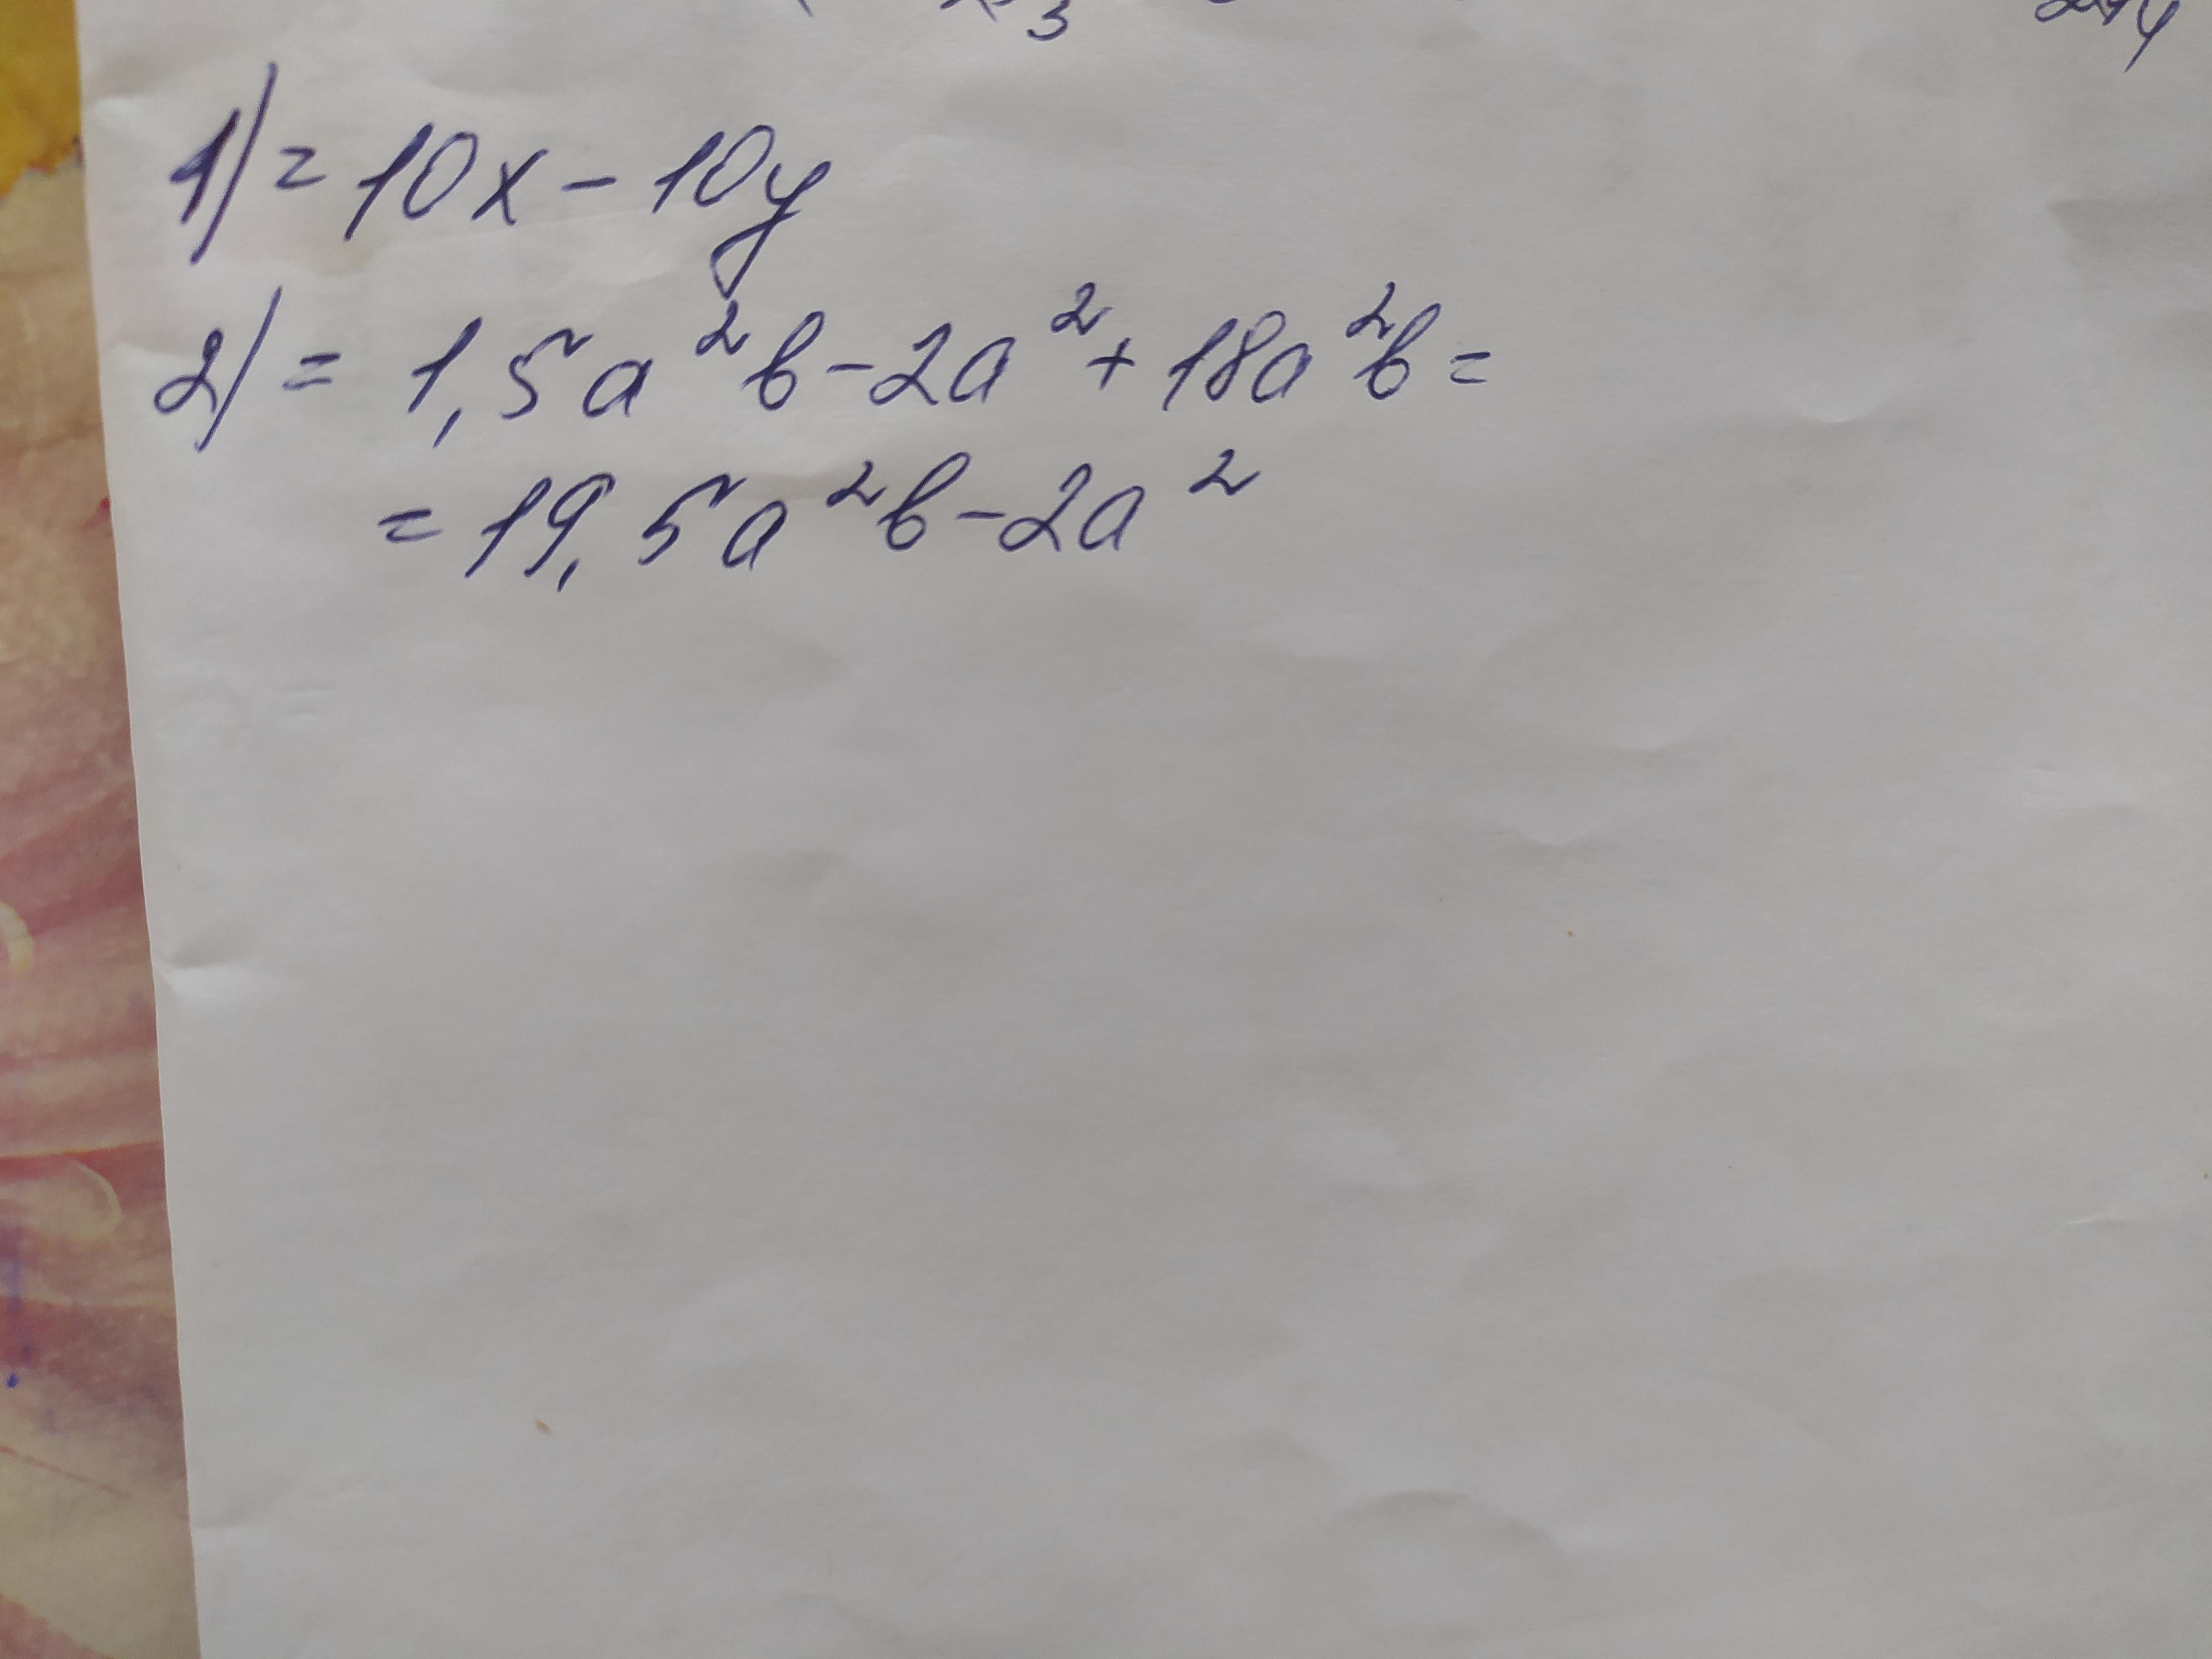 1) = 10x - 10y
2) = 1,5a²b - 2a² + 18a²b =
= 19,5a²b - 2a²